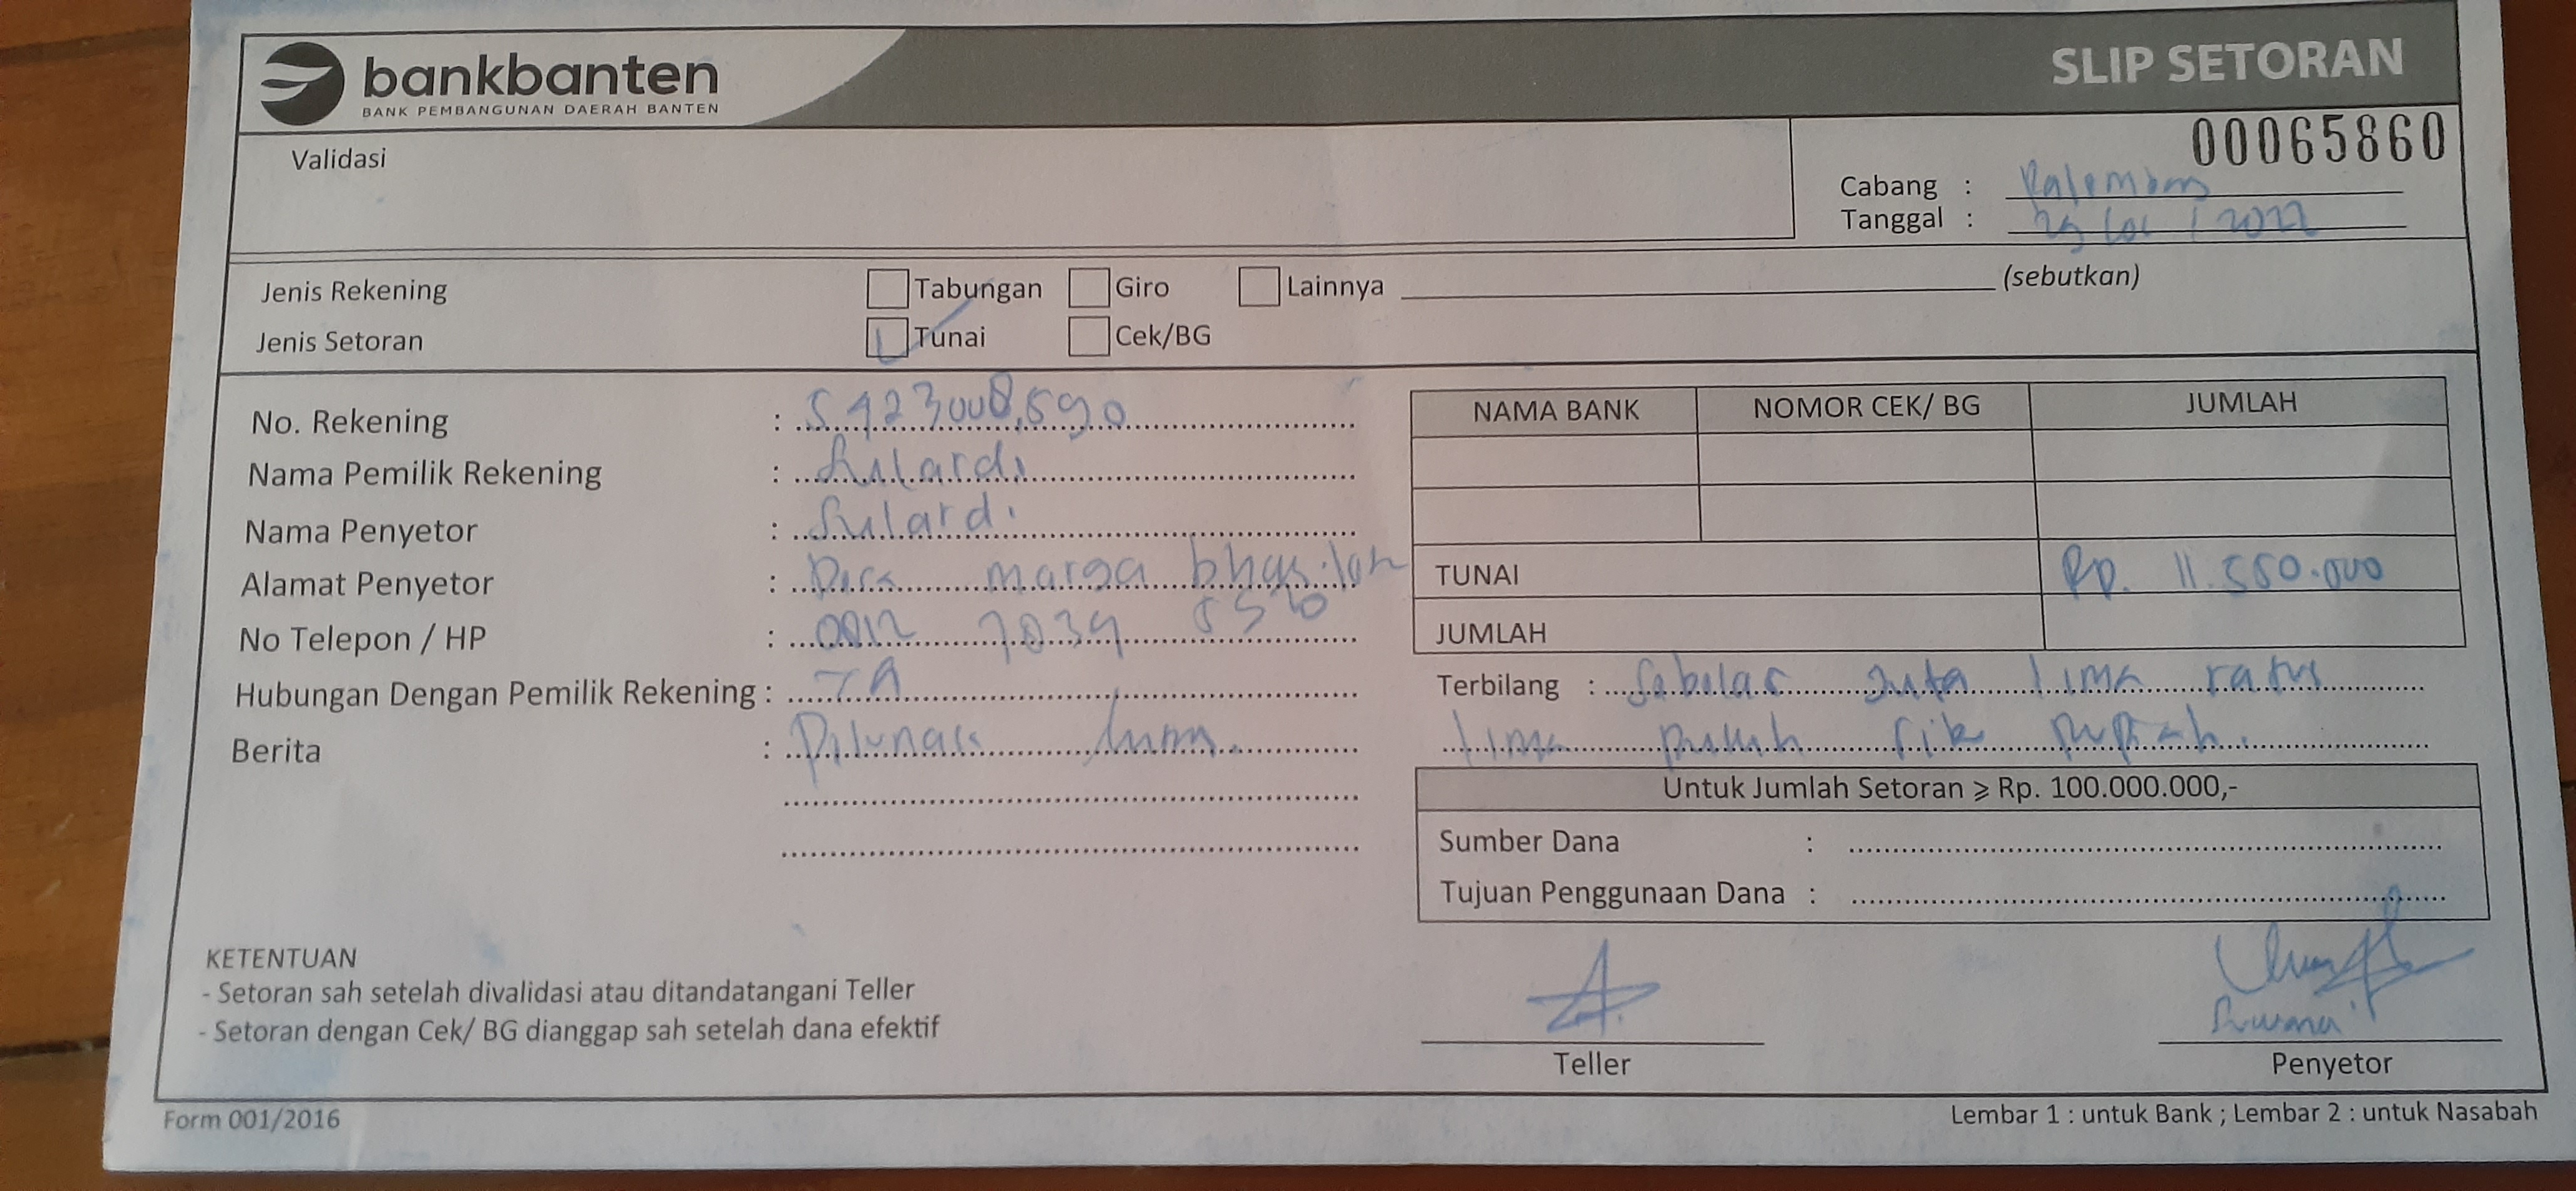 bankbanten
BANK PEMBANGUNAN DAERAH BANTEN
SLIP SETORAN
00065860
Validasi
Cabang :
Tanggal : / 2022
Jenis Rekening Tabungan Giro Lainnya (sebutkan)
Jenis Setoran Tunai Cek/BG
No. Rekening :
Nama Pemilik Rekening : Sulardi
Nama Penyetor : Sulardi
Alamat Penyetor : marga
No Telepon / HP :
Hubungan Dengan Pemilik Rekening :
Berita :
NAMA BANK NOMOR CEK/ BG JUMLAH
TUNAI Rp. 11.550.000
JUMLAH
Terbilang : Sebelas Juta lima ratus
lima puluh rupiah.
Untuk Jumlah Setoran ⩾ Rp. 100.000.000,-
Sumber Dana :
Tujuan Penggunaan Dana :
KETENTUAN
- Setoran sah setelah divalidasi atau ditandatangani Teller
- Setoran dengan Cek/ BG dianggap sah setelah dana efektif
Teller
Penyetor
Form 001/2016
Lembar 1 : untuk Bank ; Lembar 2 : untuk Nasabah